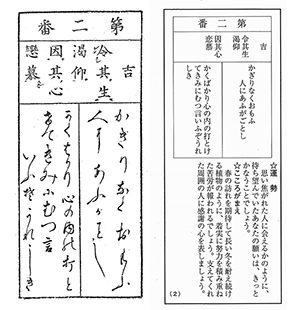 第二番
吉
令其生
渇仰
因其心
恋慕
かぎりなくおもふ
人にあふがごとし
かくばかり心の内の打とけ
てきみにむつ言いふぞうれ
しき
☆運勢
思い焦がれた人に会えるかのように、
持ち望んでいたあなたの願いは、きっと
かなうことでしょう。
☆こころがまえ
春の訪れを期待して長い冬を耐え続け
る植物のように、着実に努力を積み重ね
た苦労が報われるでしょう。支えてくれ
た周囲の人に感謝の心を表しましょう。
(2)
第二番
吉
令其生
渇仰
因其心
戀慕
かぎりなくおもふ
人にあふがごとし
かくばかり心の内の打と
けてきみにむつ言
いふぞうれしき